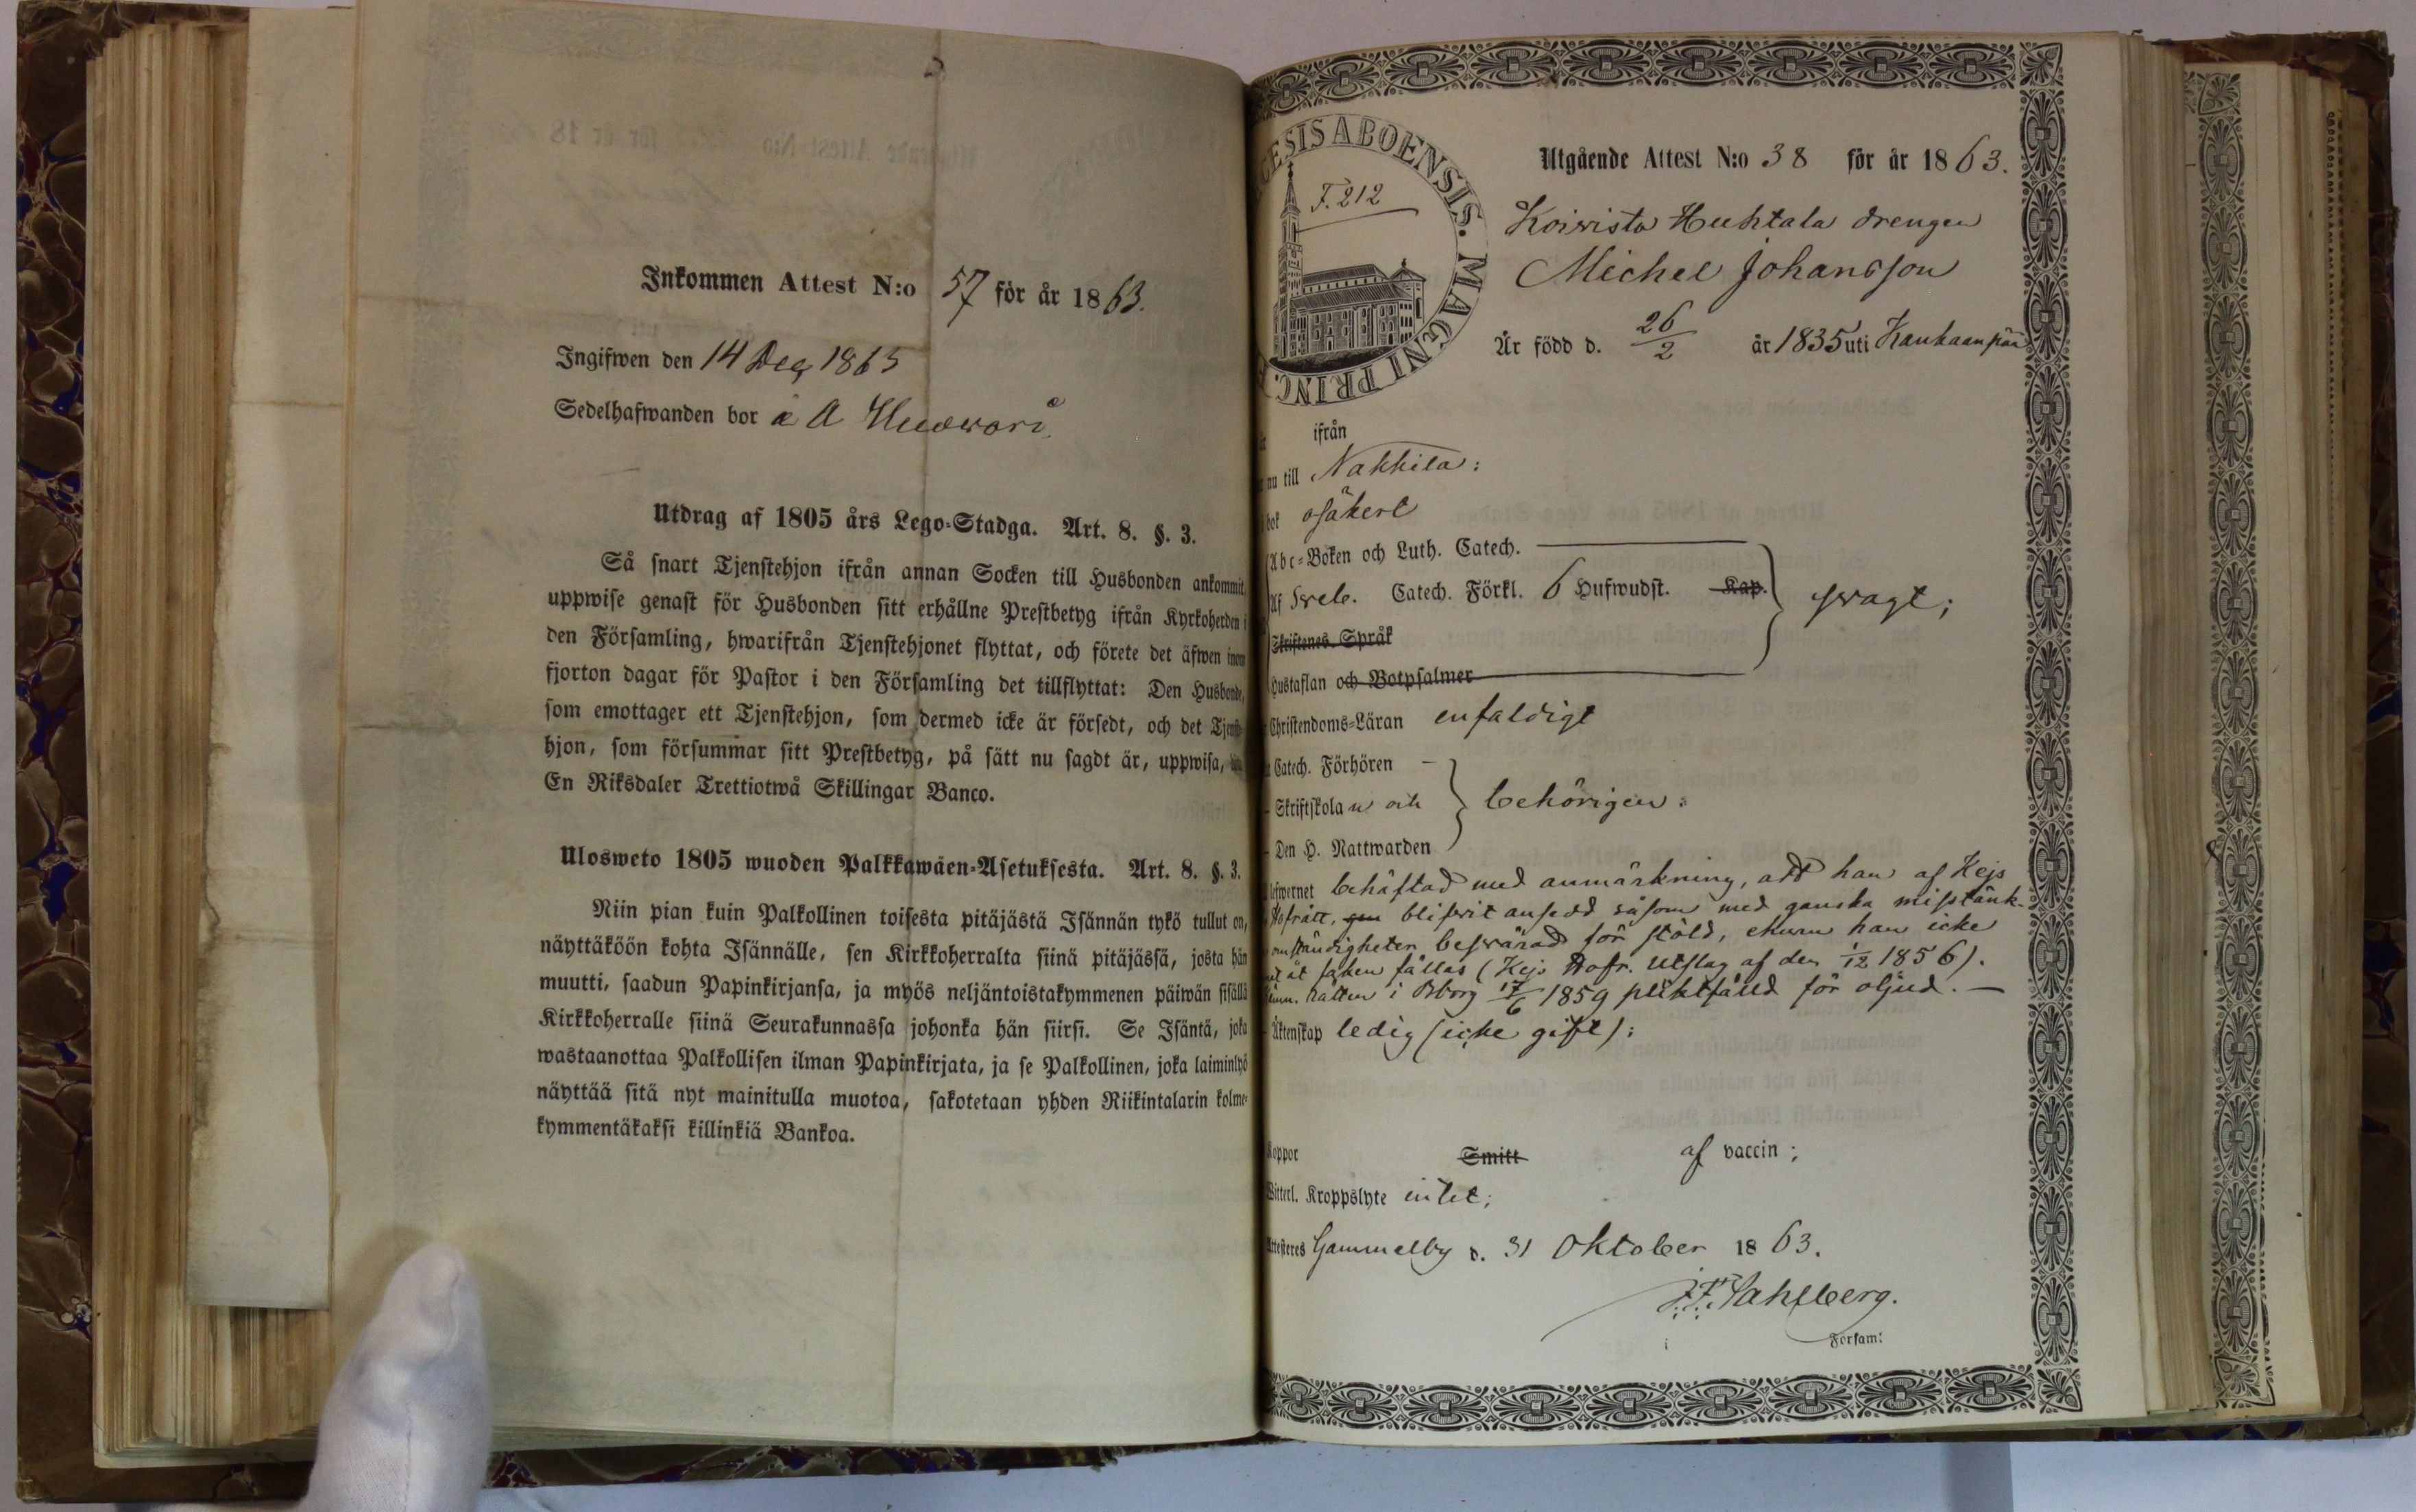 Inkommen Attest N:o 57 för år 1863.
Ingifwen den 14 Dec 1863
Sedelhafwanden bor å A
Utdrag af 1805 års Lego-Stadga. Art. 8. §. 3.
Så snart Tjenstehjon ifrån annan Socken till Husbonden ankommit
uppwise genast för Husbonden sitt erhållne Prestbetyg ifrån Kyrkoherden i
den Församling, hwarifrån Tjenstehjonet flyttat, och förete det äfwen inom
fjorton dagar för Pastor i den Församling det tillflyttat: Den Husbonde,
som emottager ett Tjenstehjon, som dermed icke är försedt, och det Tjenste-
hjon, som försummar sitt Prestbetyg, på sätt nu sagdt är, uppwisa,
En Riksdaler Trettiotwå Skillingar Banco.
Ulosweto 1805 wuoden Palkkawäen-Asetuksesta. Art. 8. §. 3.
Niin pian kuin Palkollinen toisesta pitäjästä Isännän tykö tullut on,
näyttäköön kohta Isännälle, sen Kirkkoherralta siinä pitäjässä, josta hän
muutti, saadun Papinkirjansa, ja myös neljäntoistakymmenen päiwän sisällä
Kirkkoherralle siinä Seurakunnassa johonka hän siirsi. Se Isäntä, joka
wastaanottaa Palkollisen ilman Papinkirjata, ja se Palkollinen, joka laiminlyö
näyttää sitä nyt mainitulla muotoa, sakotetaan yhden Riikintalarin kolme-
kymmentäkaksi killinkiä Bankoa.
CESIS ABOENSIS. MAGNI PRINC.
F. 212
Utgående Attest N:o 38 för år 1863.
Koivisto Huhtala drengen
Michel Johansson
Är född d. 26/2 år 1835 uti Kankaanpää
ifrån
nu till Nakkila:
bok osäkert
Abc-Boken och Luth. Catech.
Af Sveb. Catech. Förkl. 6 Hufwudst. Kap. } svagt;
Skriftenes Språk
Hustaflan och Botpsalmer
Christendoms-Läran enfaldigt
Catech. Förhören
Skriftskolan och } behörigen:
Den H. Nattwarden
Lefwernet behäftad med anmärkning, att han af Kejs
Hofrätt, blifvit ansedd såsom med ganska misstänk.
omständigheter besvärad för stöld, ehuru han icke
åt saken fällas (Kejs Hofr. Utslag af den 1/12 1856).
Rätten i Bborg 17/6 1859 pliktfälld för oljud. —
Äktenskap ledig (icke gift):
Koppor Smitt af vaccin;
Witterl. Kroppslyte intet;
Attesteras Gammelby d. 31 Oktober 1863.
J. F. Sahlberg.
i Försam: